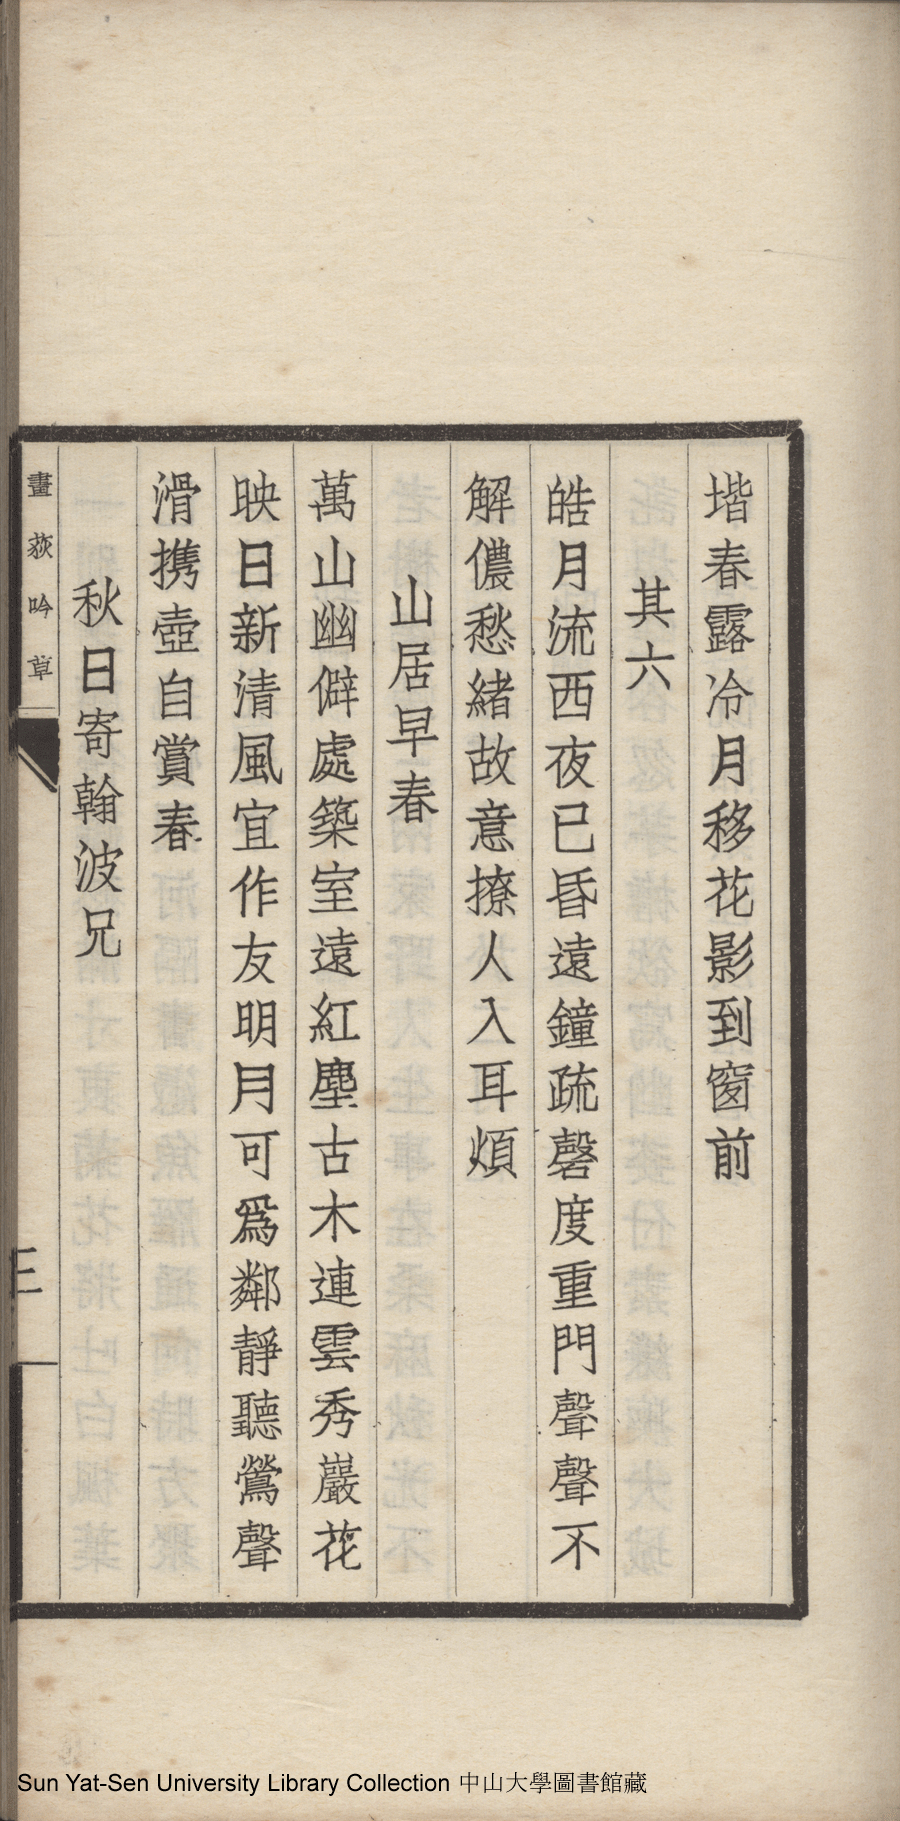 堦春露冷月移花影到窗前
其六
皓月流西夜已昏遠鐘疏磬度重門聲聲不
解儂愁緒故意撩人入耳煩
山居早春
萬山幽僻處築室遠紅塵古木連雲秀巖花
映日新清風宜作友明月可爲鄰靜聽鶯聲
滑携壺自賞春
秋日寄翰波兄
畫荻吟草
三
Sun Yat-Sen University Library Collection 中山大學圖書館藏